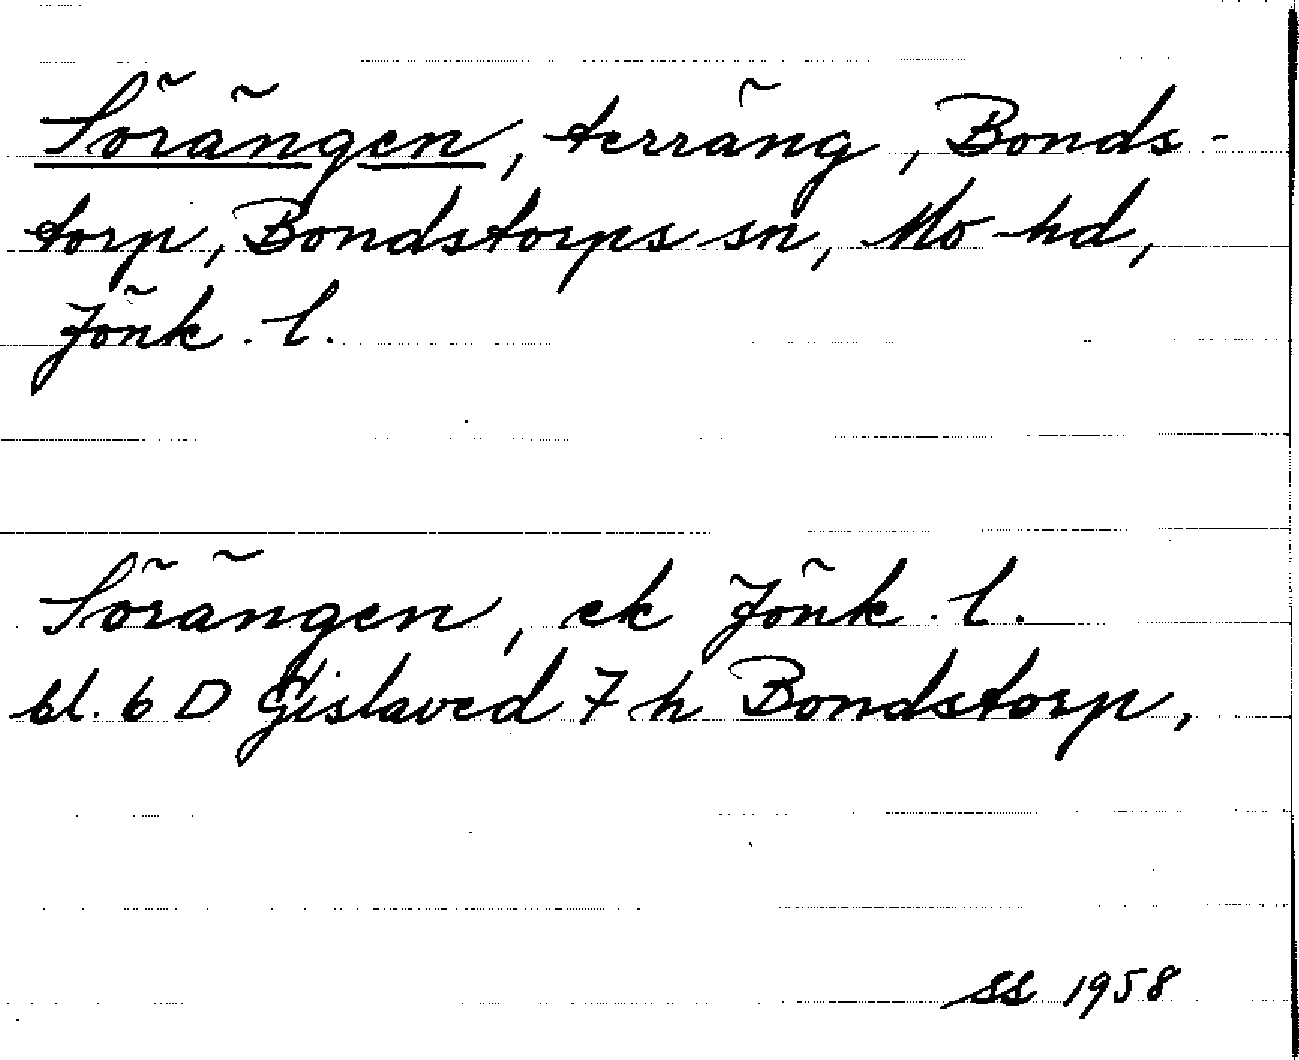 Sörängen, terräng, Bonds-
torp, Bondstorps sn, Mo hd,
Jönk. l.
Sörängen, ek Jönk. l.
bl. 6 D Gislaved 7 h Bondstorp,
SS 1958